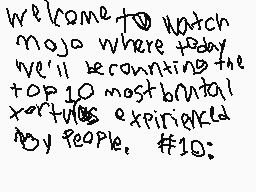 welcome to watch
mojo where today
we'll be counnting the
top 10 most brutal
experienced
by people. #10: